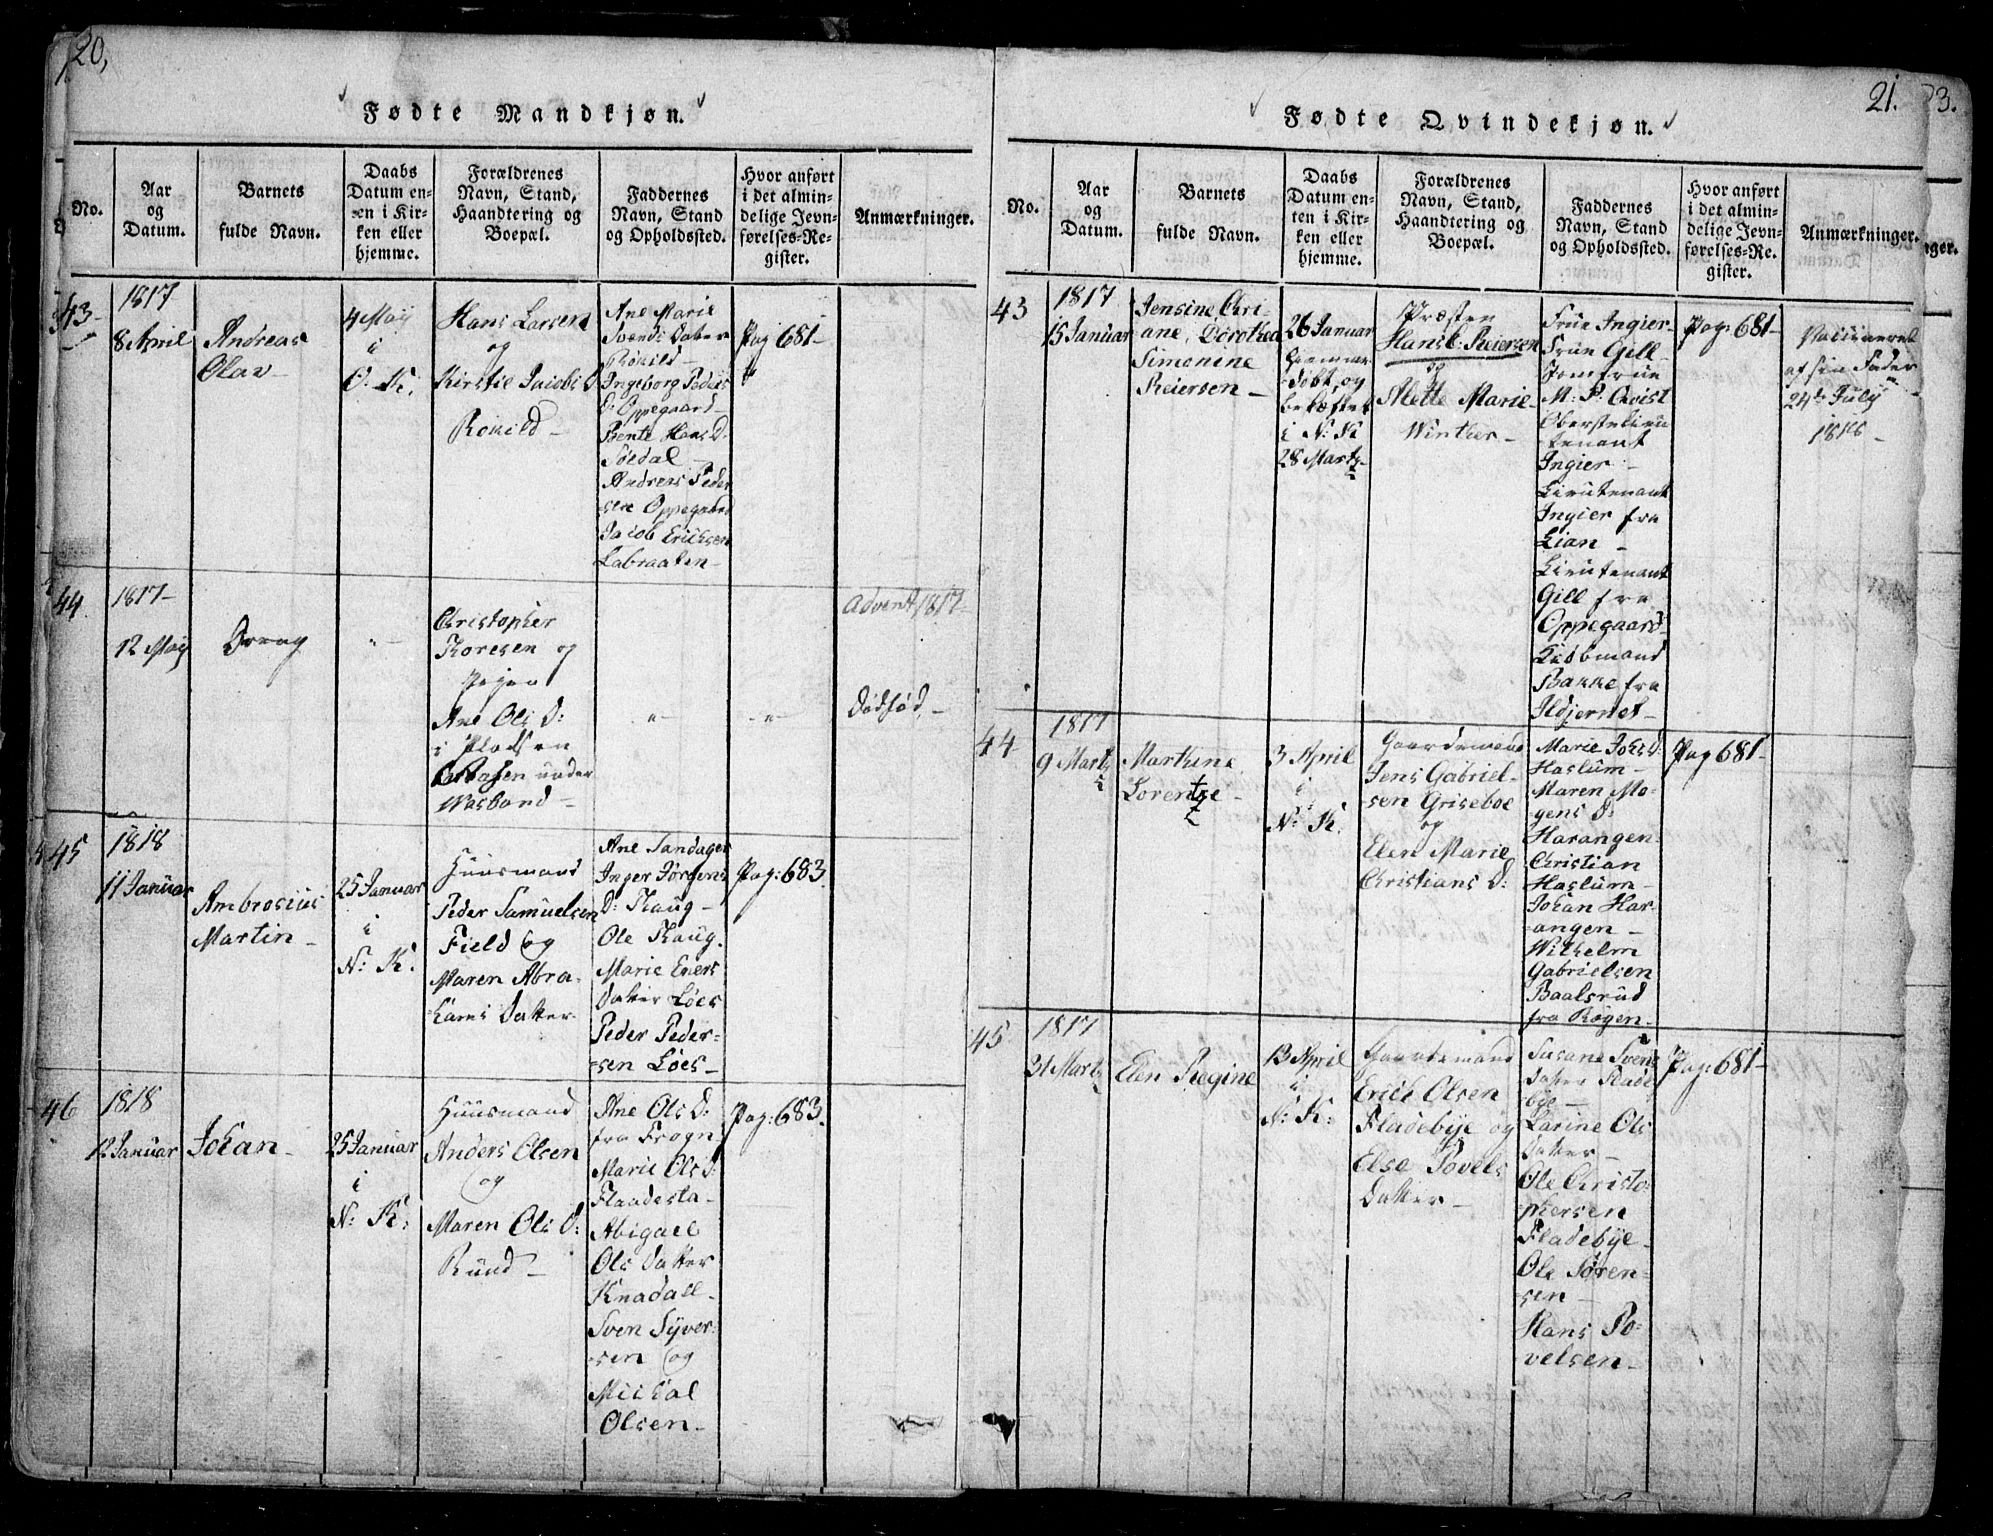 20,
Fødte Mandkjøn.
No.
Aar
og
Datum.
Barnets
fulde Navn.
Daabs
Datum en-
ten i Kir-
ken eller
hjemme.
Forældrenes
Navn, Stand,
Haandtering og
Boepæl.
Faddernes
Navn, Stand
og Opholdssted.
Hvor anført
i det almin-
delige Jevn-
førelses-Re-
gister.
Anmærkninger.
43
1817
8 April
Andreas
Olav-
4 May
i
O: K.
Hans Larsen
og
Kirstie Jacobs D
Rokild-
Ane Marie
Svends Datter
Rokild-
Ingeborg Peders
D: Oppegaard-
Bente Hans D.
Søedal-
Andreas Peder
sen Oppegaard
Jacob Erichsen
Labraaten-
Pag 681-
44
1817-
12 May
Dreng
"-
Christopher
Thoresen og
Pigen
Ane Ols D:
i Pladsen
under
Wasbond-
"-
"-
Advent 1817-
Dødfød-
45
1818
11 Januar
Ambrosius
Martin-
25 Januar
i
N: K.
Huusmand
Peder Samuelsen
Field og
Maren Abra-
hams Datter
Ane Sandager
Inger Jørgens
D: Skaug-
Ole Skaug.
Marie Eners
Datter Løes
Peder Peder=
sen Løes-
Pag: 683
46
1818
12 Januar
Johan-
25 Januar
i
N: K:
Huusmand
Anders Olsen
og
Maren Ols D:
Rund-
Ane Ols D:
fra Frogn
Marie Ols D:
Flaadesta-
Abigael
Ols Datter
Knadal-
Sven Syver-
sen og
Michal
Olsen-
Pag: 683.
21.
Fødte Qvindekjøn.
No.
Aar
og
Datum.
Barnets
fulde Navn.
Daabs
Datum en-
ten i Kir-
ken eller
hjemme.
Forældrenes
Navn, Stand,
Haandtering og
Boepæl.
Faddernes
Navn, Stand
og Opholdssted.
Hvor anført
i det almin-
delige Jevn-
førelses-Re-
gister.
Anmærkninger.
43
1817
15 Januar
Jensine Chri-
ane, Dorothea
Simonine
Reiersen-
26 Januar
hiemme-
døbt, og
bekræftet
i N: K
28 Marts-
Præsten
Hans b: Reiersen
og
Mette Marie
Winther-
Frue Ingier-
Frue Gill-
Jomfrue
M: P: Qvist
Oberstelieu
tenant
Ingier-
Lieutenant
Ingier fra
Lian-
Lieutenant
Gill fra
Oppegaard-
Kiøbmand
Bakke fra
Ildjernet-
Pag: 681-
Vaccineret
af sin Fader
24de July
1818-
44
1817
9 Marts
Marthine
Lorentze-
3 April
i
N: K.
Gaardmand
Jens Gabriel-
sen Griseboe
og
Elen Marie
Christians D:
Marie Johs D:
Haslum-
Maren Mo-
gens D:
Harangen-
Christian
Haslum-
Johan Har-
angen-
Wilhelm
Gabrielsen
Baalsrud
fra Røgen-
Pag 681-
45
1817
31 Marts
Elen Regine
13 April
i
N: K:
Gaardmand
Erich Olsen
Fladebye og
Else Povels
Datter-
Susane Svens
Datter Flade
bye-
Karine Ols
Datter-
Ole Christo-
phersen
Fladebye-
Ole Søren=
sen-
Hans Po=
velsen-
Pag: 681-